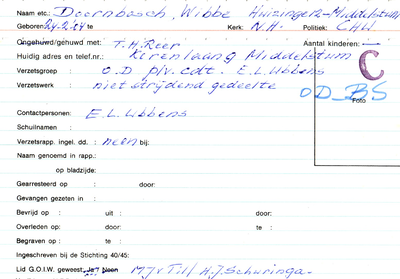 Naam etc.: Doornbosch, Wibbe Huizinge 12 - Middelstum
Geboren 24-2-24 te Kerk: N.H. Politiek: CHU
Ongehuwd/gehuwd met: T.H. Reer Aantal kinderen: —
Huidig adres en telef.nr.: Kerenlaang Middelstum
Verzetsgroep : O.D plv. cdt. E.L. Ubbens
Verzetswerk niet strijdend gedeelte
C
OD_BS
Foto
Contactpersonen: E.L. Ubbens
Schuilnaam :
Verzetsrapp. ingel. dd. : neen bij:
Naam genoemd in rapp.:
op bladzijde:
Gearresteerd op : door:
Gevangen gezeten in :
Bevrijd op : uit : door:
Overleden op: door: te :
Begraven op : te :
Ingeschreven bij de Stichting 40/45:
Lid G.O.I.W. geweest: Ja? Neen M.J. v Til / H.J. Schuringa-